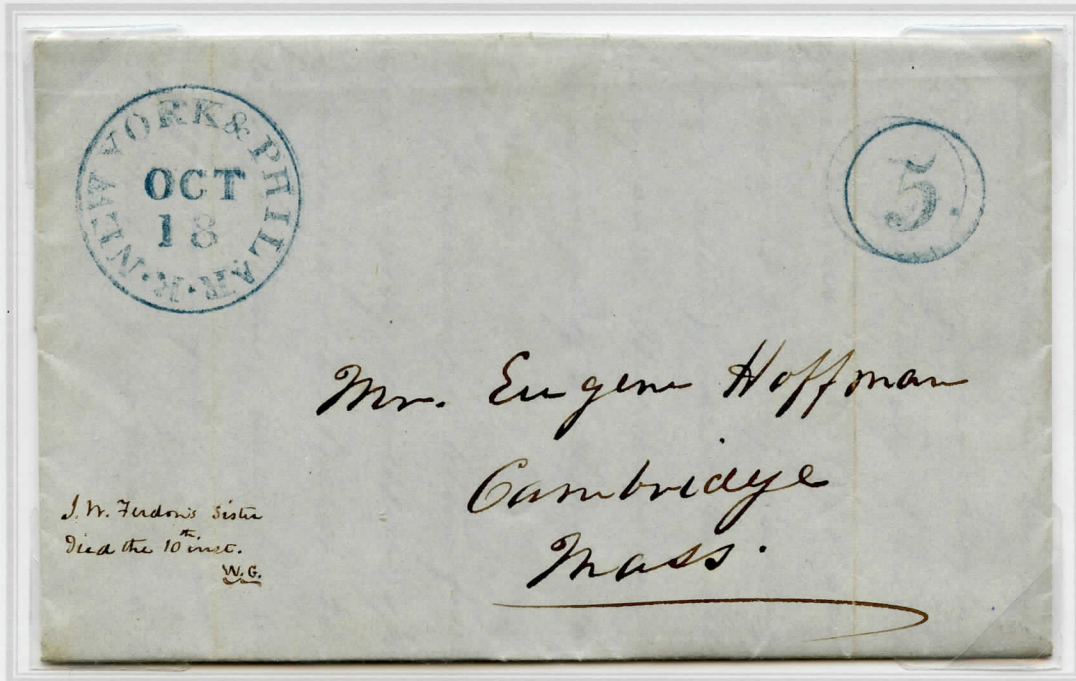 NEW YORK & PHILA R. R.
OCT
18
5.
Mr. Eugene Hoffman
Cambridge
Mass.
J. W. Ferdon's Sister
Died the 10th inst.
W.G.